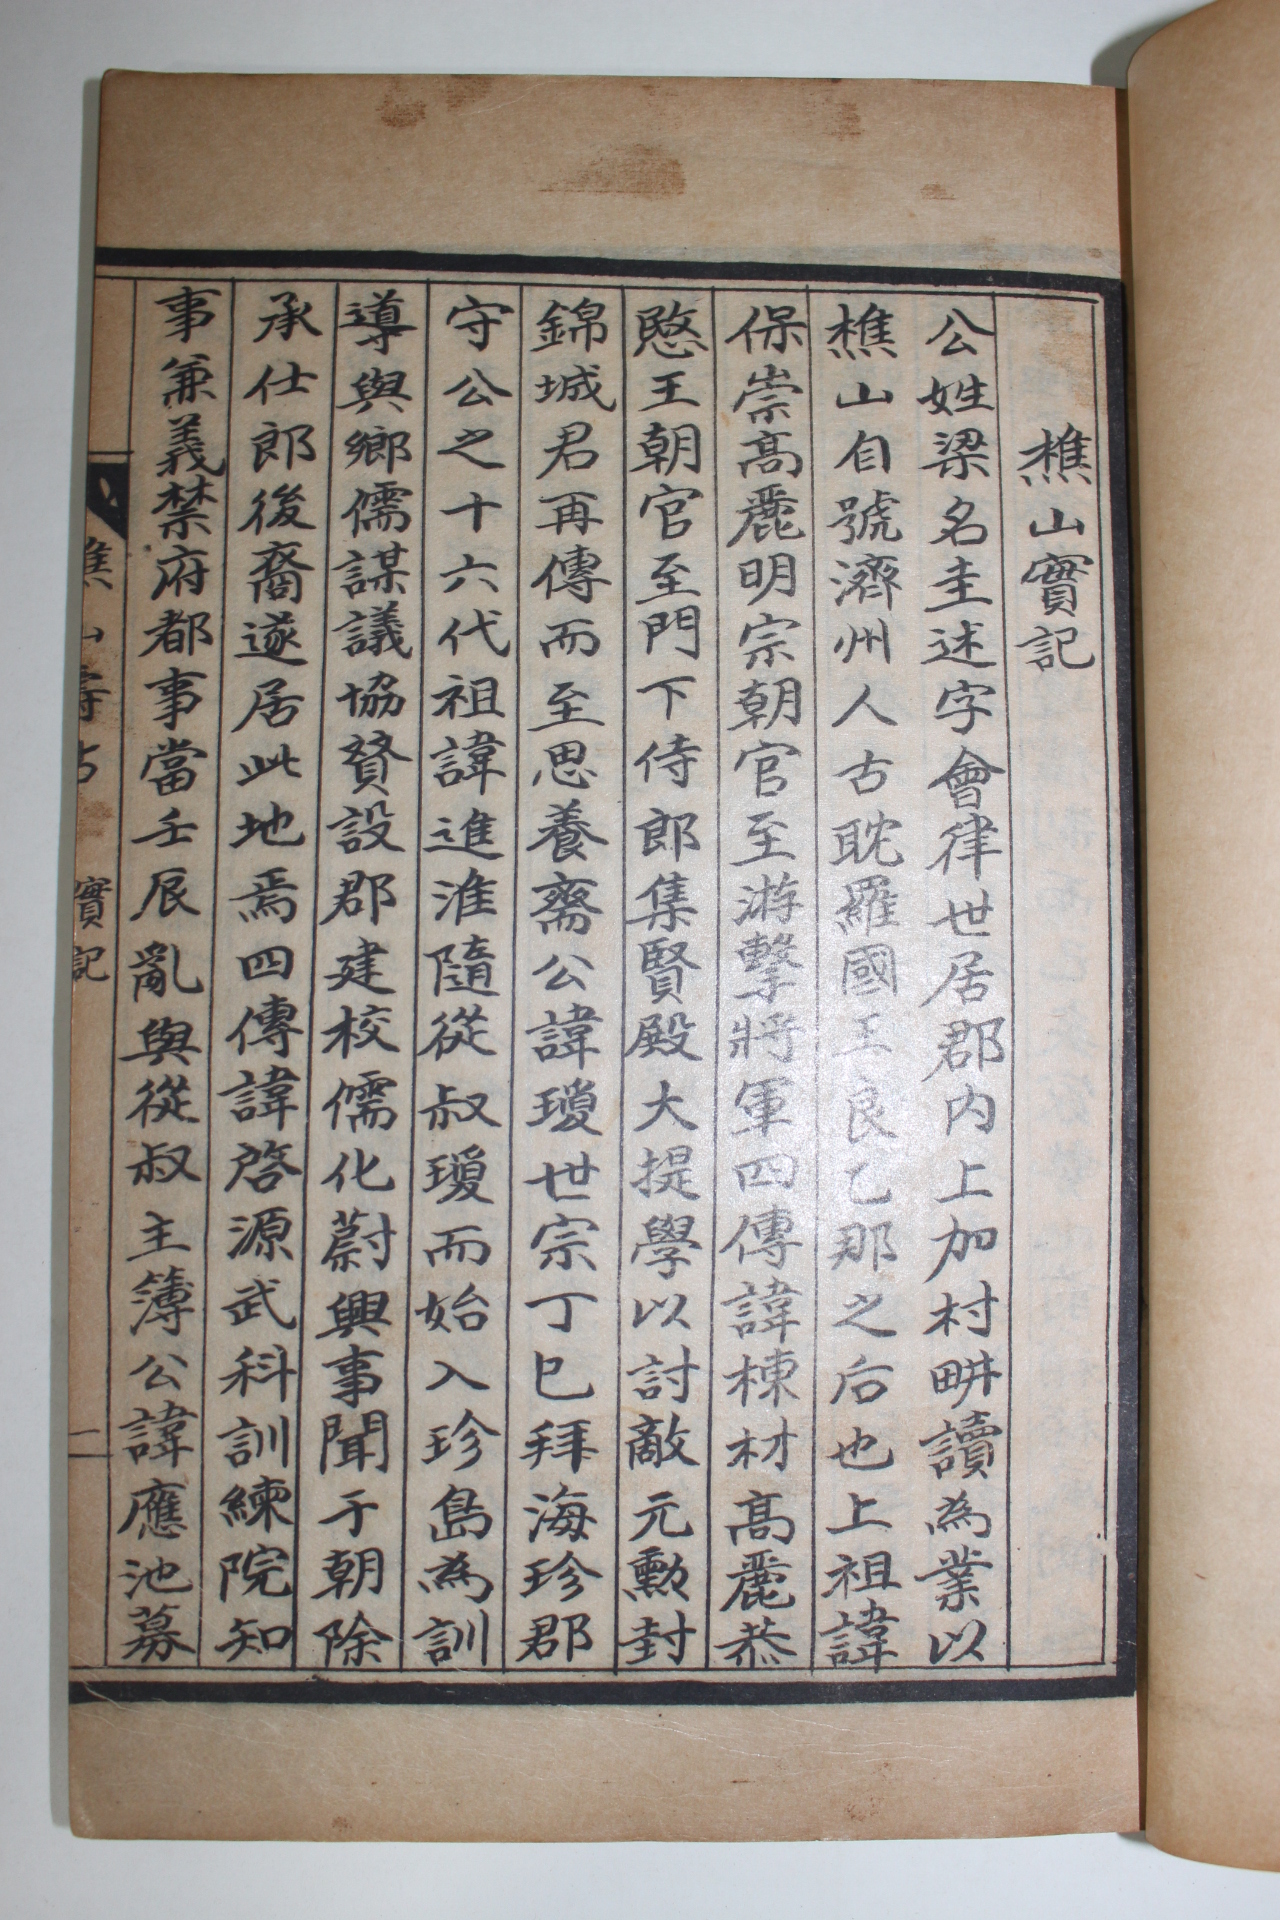 樵山實記
公姓梁名圭述字會律世居郡內上加村畊讀為業以
樵山自號濟州人古耽羅國王良乙那之后也上祖諱
保崇高麗明宗朝官至游擊將軍四傳諱棟材高麗恭
愍王朝官至門下侍郎集賢殿大提學以討敵元勳封
錦城君再傳而至思養齋公諱瓊世宗丁巳拜海珍郡
守公之十六代祖諱進淮隨從叔瓊而始入珍島為訓
導與鄉儒謀議協贊設郡建校儒化蔚興事聞于朝除
承仕郎後裔遂居此地焉四傳諱啓源武科訓練院知
事兼義禁府都事當壬辰亂與從叔主簿公諱應池募
樵山 實記
一